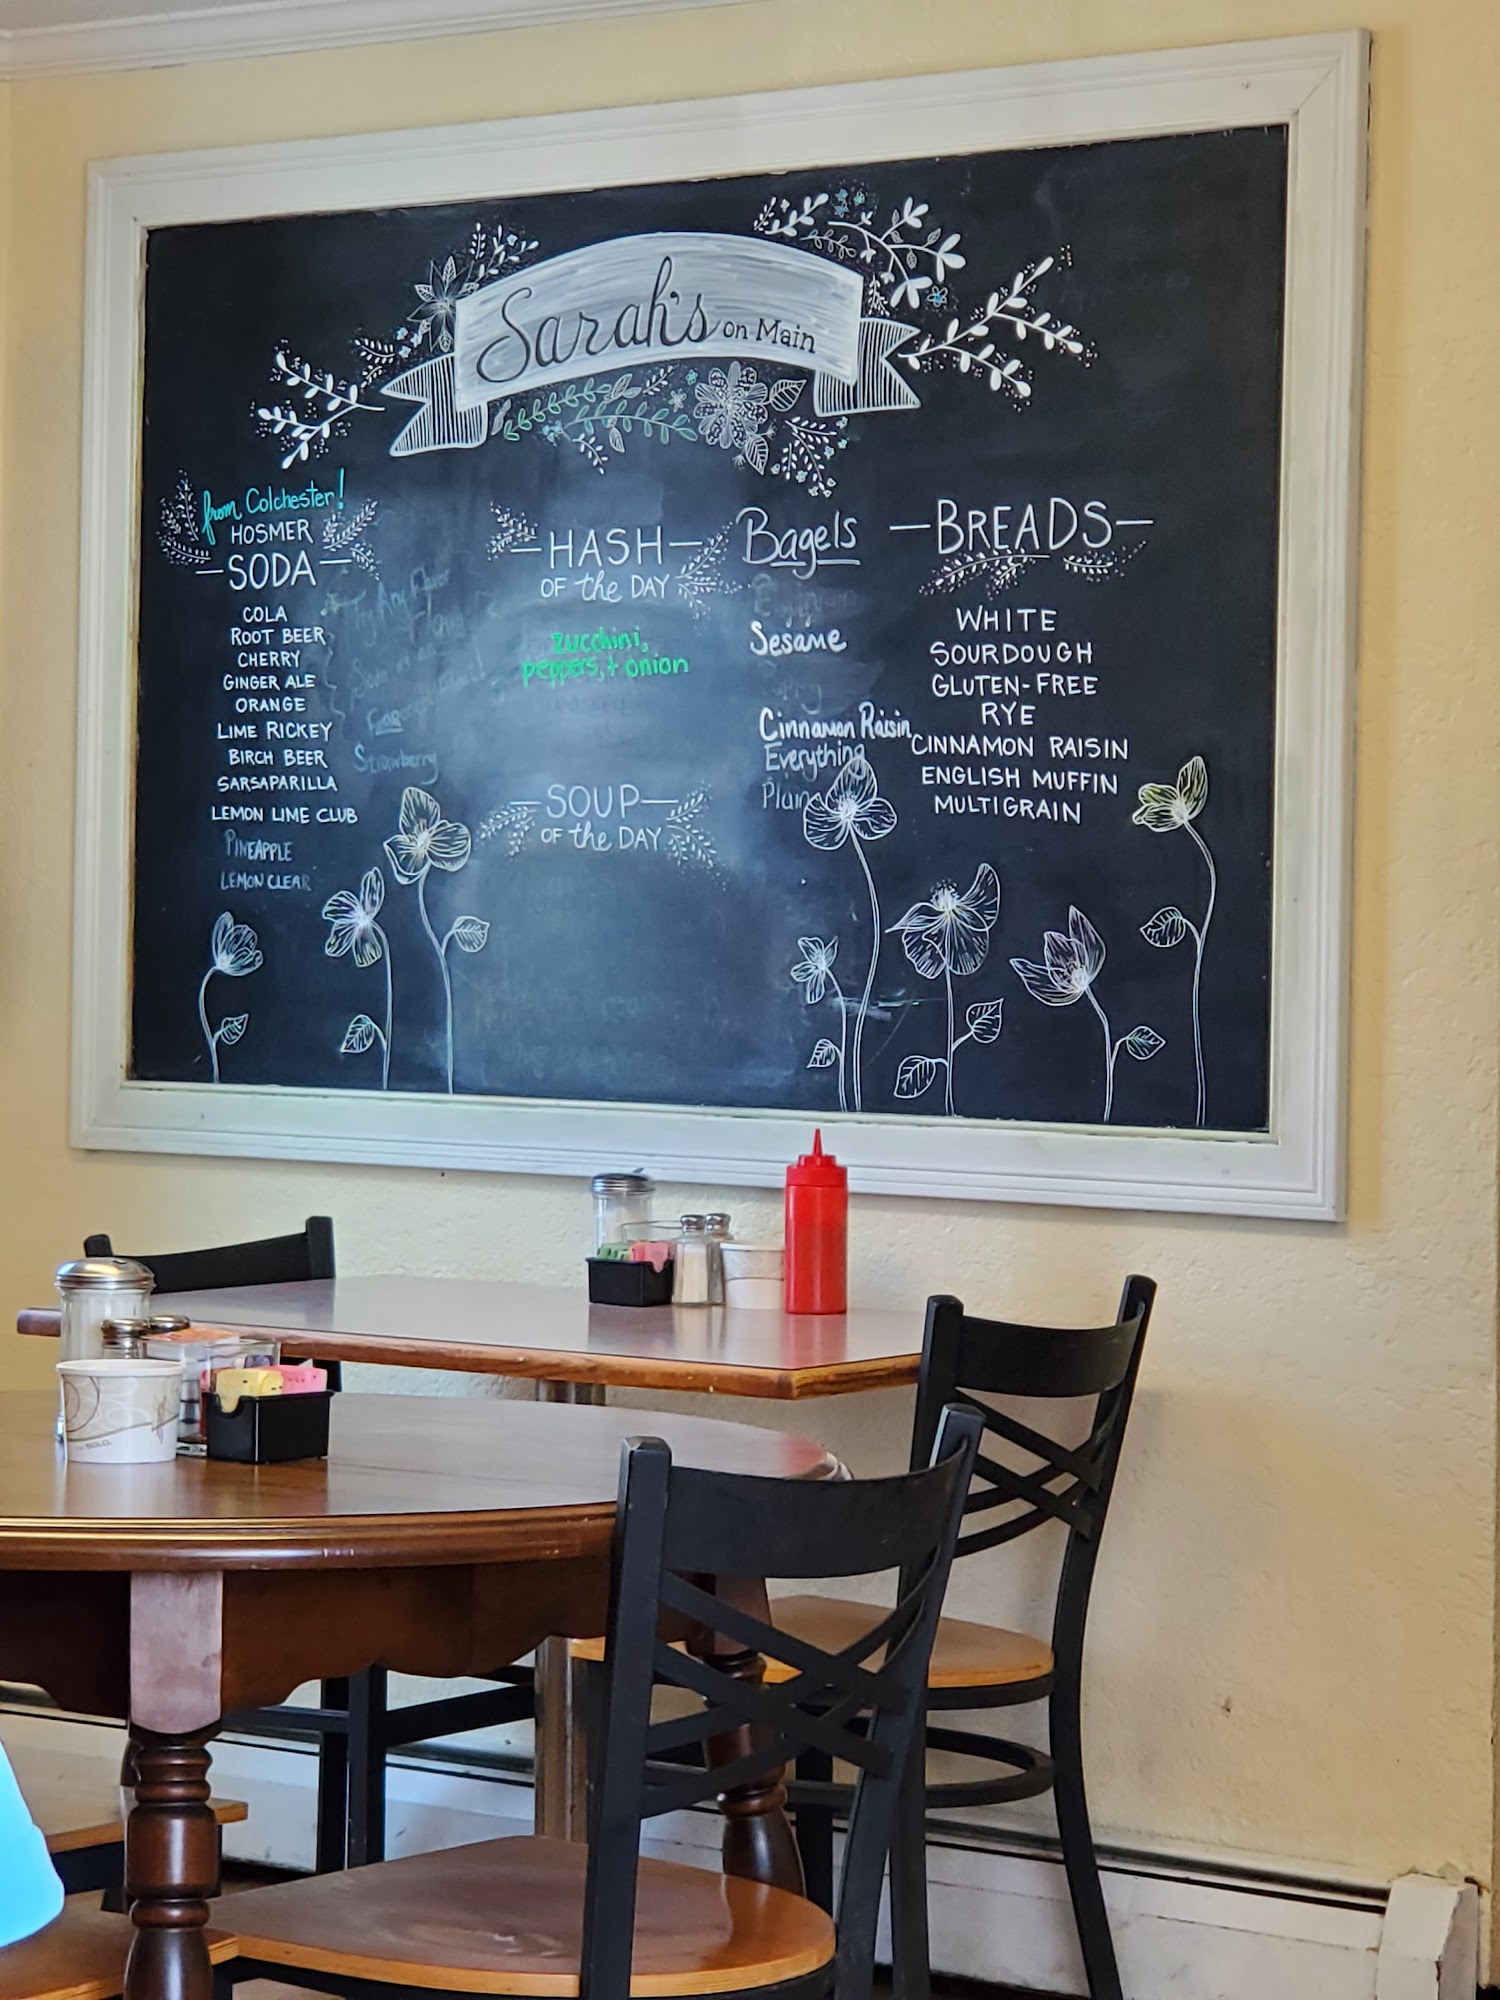 Sarah's on Main
from Colchester!
HOSMER
SODA
COLA
ROOT BEER
CHERRY
GINGER ALE
ORANGE
LIME RICKEY
BIRCH BEER
SARSAPARILLA
LEMON LIME CLUB
PINEAPPLE
LEMON CLEAR
Any Flavor
Strawberry
HASH
OF the DAY
zucchini,
peppers, + onion
SOUP
OF the DAY
Bagels
Sesame
Cinnamon Raisin
Everything
Plain
BREADS
WHITE
SOURDOUGH
GLUTEN-FREE
RYE
CINNAMON RAISIN
ENGLISH MUFFIN
MULTIGRAIN
SOLO